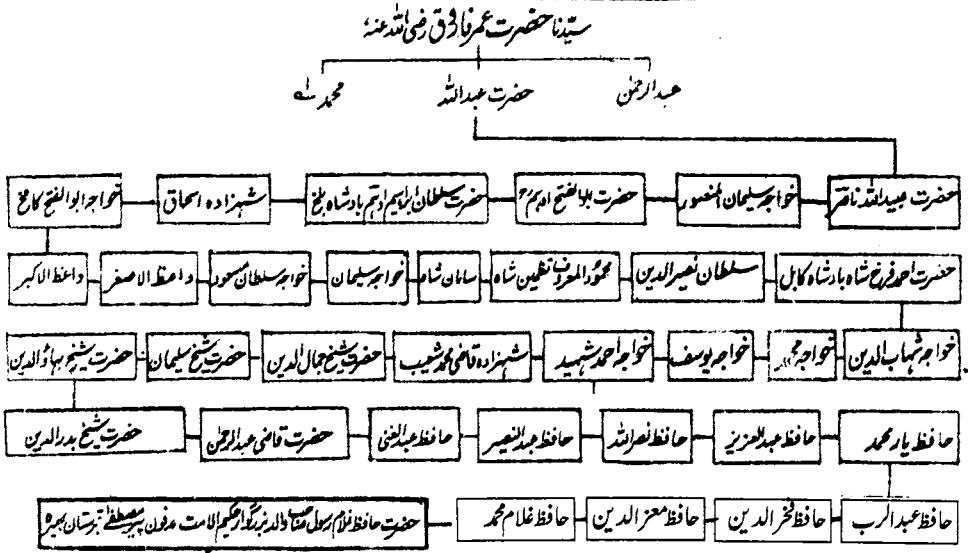 سیّدنا حضرت عمر فاروق رضی اللہ عنہ
عبدالرحمٰن حضرت عبداللہ محمد
حضرت عبیداللہ ناصر خواجہ سلیمان المنصور حضرت ابوالفتح ادہم حضرت سلطان ابراہیم ادہم بادشاہ بلخ شہزادہ اسحاق خواجہ ابوالفتح کامخ
حضرت احمد فرخ شاہ بادشاہ کابل سلطان نصیرالدین محمود المعروف شاہ سامان شاہ خواجہ سلیمان خواجہ سلطان مسعود داعظ الاصغر داعظ الاکبر
خواجہ شہاب الدین خواجہ محمد خواجہ یوسف خواجہ احمد شہید شہزادہ قاضی محمد شعیب حضرت شیخ جمال الدین حضرت شیخ سلیمان حضرت شیخ بہاؤالدین
حافظ یار محمد حافظ عبدالعزیز حافظ نصراللہ حافظ عبدالنصیر حافظ عبدالغنی حضرت قاضی عبدالرحمٰن حضرت شیخ بدرالدین
حافظ عبدالرب حافظ فخرالدین حافظ معزالدین حافظ غلام محمد حضرت حافظ غلام رسول صاحب والد بزرگوار حکیم الامت مدفون قبرستان بھیرہ